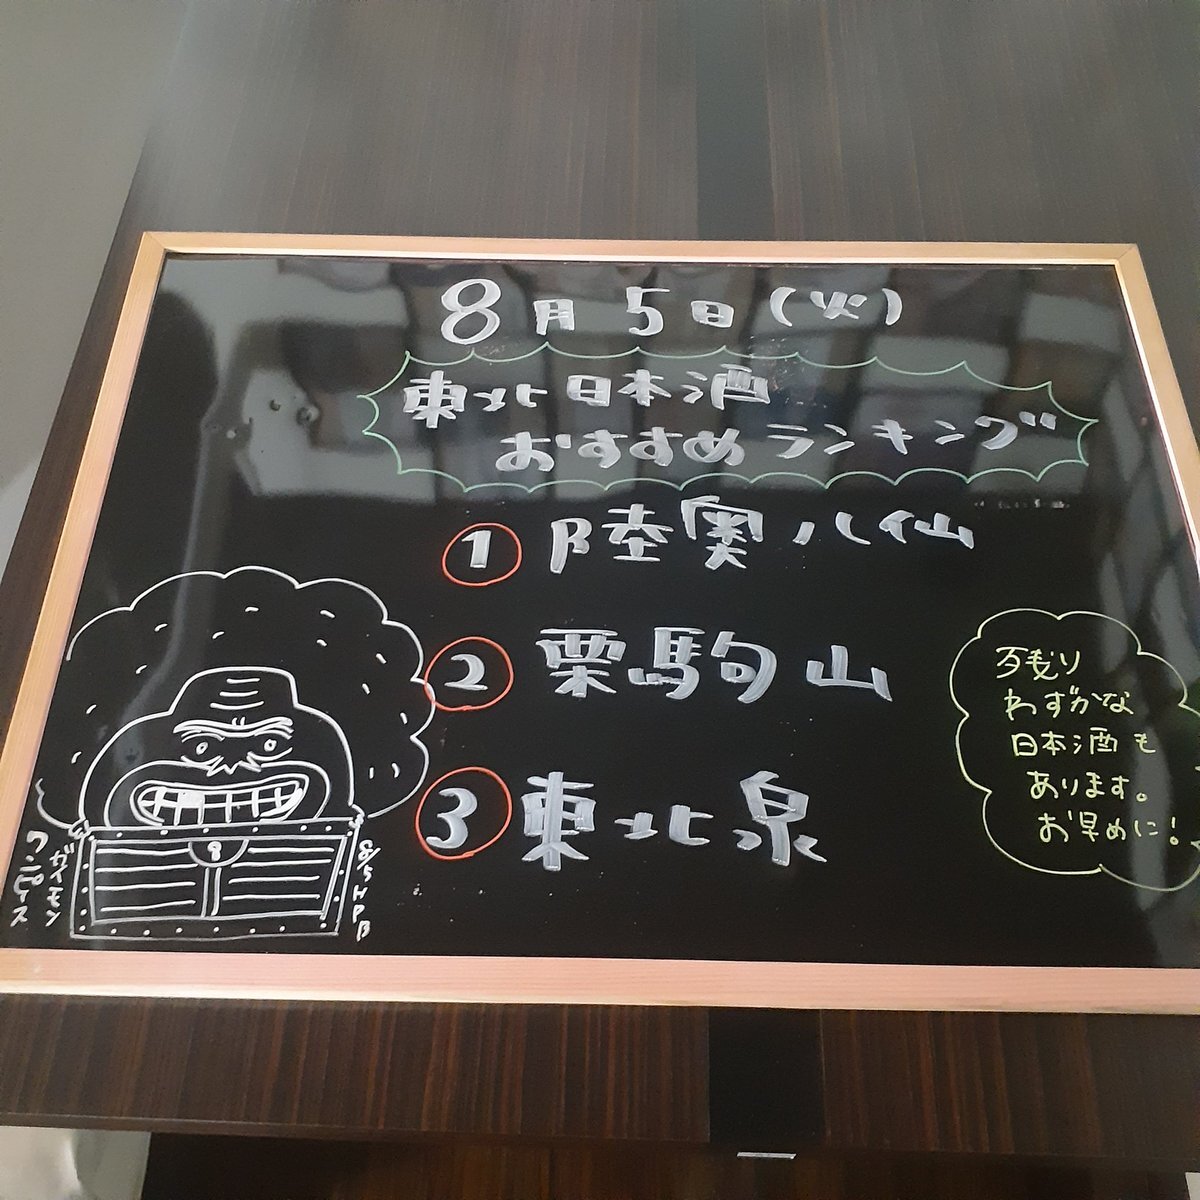 8月5日(火)
東北日本酒
おすすめランキング
① 陸奥八仙
② 栗駒山
③ 東北泉
残り
わずかな
日本酒も
あります。
お早めに!
ワンピース
ガイモン
8/5 HPB